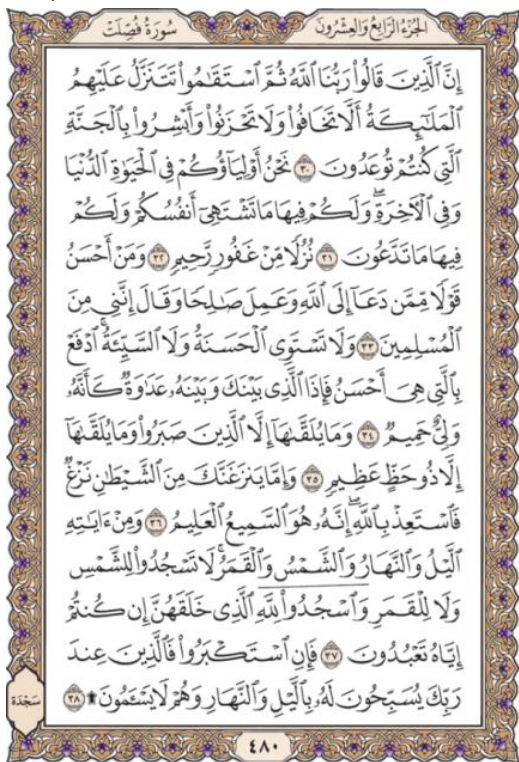 الجُزْءُ الرَّابِعُ وَالعِشْرُونَ
سُورَةُ فُصِّلَتْ
إِنَّ ٱلَّذِينَ قَالُواْ رَبُّنَا ٱللَّهُ ثُمَّ ٱسْتَقَٰمُواْ تَتَنَزَّلُ عَلَيْهِمُ
ٱلْمَلَٰٓئِكَةُ أَلَّا تَخَافُواْ وَلَا تَحْزَنُواْ وَأَبْشِرُواْ بِٱلْجَنَّةِ
ٱلَّتِي كُنتُمْ تُوعَدُونَ ٣٠ نَحْنُ أَوْلِيَآؤُكُمْ فِي ٱلْحَيَوٰةِ ٱلدُّنْيَا
وَفِي ٱلْأٓخِرَةِۖ وَلَكُمْ فِيهَا مَا تَشْتَهِيٓ أَنفُسُكُمْ وَلَكُمْ
فِيهَا مَا تَدَّعُونَ ٣١ نُزُلًا مِّنْ غَفُورٍ رَّحِيمٍ ٣٢ وَمَنْ أَحْسَنُ
قَوْلًا مِّمَّن دَعَآ إِلَى ٱللَّهِ وَعَمِلَ صَٰلِحًا وَقَالَ إِنَّنِي مِنَ
ٱلْمُسْلِمِينَ ٣٣ وَلَا تَسْتَوِي ٱلْحَسَنَةُ وَلَا ٱلسَّيِّئَةُۚ ٱدْفَعْ
بِٱلَّتِي هِيَ أَحْسَنُ فَإِذَا ٱلَّذِي بَيْنَكَ وَبَيْنَهُۥ عَدَٰوَةٌ كَأَنَّهُۥ
وَلِيٌّ حَمِيمٌ ٣٤ وَمَا يُلَقَّىٰهَآ إِلَّا ٱلَّذِينَ صَبَرُواْ وَمَا يُلَقَّىٰهَآ
إِلَّا ذُو حَظٍّ عَظِيمٍ ٣٥ وَإِمَّا يَنزَغَنَّكَ مِنَ ٱلشَّيْطَٰنِ نَزْغٌ
فَٱسْتَعِذْ بِٱللَّهِۖ إِنَّهُۥ هُوَ ٱلسَّمِيعُ ٱلْعَلِيمُ ٣٦ وَمِنْ ءَايَٰتِهِ
ٱلَّيْلُ وَٱلنَّهَارُ وَٱلشَّمْسُ وَٱلْقَمَرُۚ لَا تَسْجُدُواْ لِلشَّمْسِ
وَلَا لِلْقَمَرِ وَٱسْجُدُواْ لِلَّهِ ٱلَّذِي خَلَقَهُنَّ إِن كُنتُمْ
إِيَّاهُ تَعْبُدُونَ ٣٧ فَإِنِ ٱسْتَكْبَرُواْ فَٱلَّذِينَ عِندَ
رَبِّكَ يُسَبِّحُونَ لَهُۥ بِٱلَّيْلِ وَٱلنَّهَارِ وَهُمْ لَا يَسْـَٔمُونَ۩ ٣٨
سَجْدَة
٤٨٠